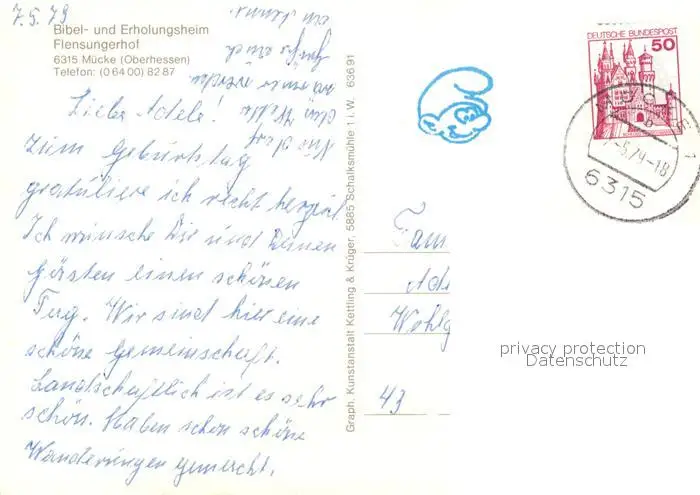 7.5.79
Bibel- und Erholungsheim
Flensungerhof
6315 Mücke (Oberhessen)
Telefon: (0 64 00) 82 87
Liebe Adele!
Zum Geburtstag
gratuliere ich recht herzlich.
Ich wünsche Dir und Deinen
Gästen einen schönen
Tag. Wir sind hier eine
schöne Gemeinschaft.
Landschaftlich ist es sehr
schön. Haben schon schöne
Wanderungen gemacht.
Graph. Kunstanstalt Kettling & Krüger, 5885 Schalksmühle 1 i. W. 63691
DEUTSCHE BUNDESPOST
50
-5.79-18
6315
Fam
Ade
Wohlg
43
privacy protection
Datenschutz